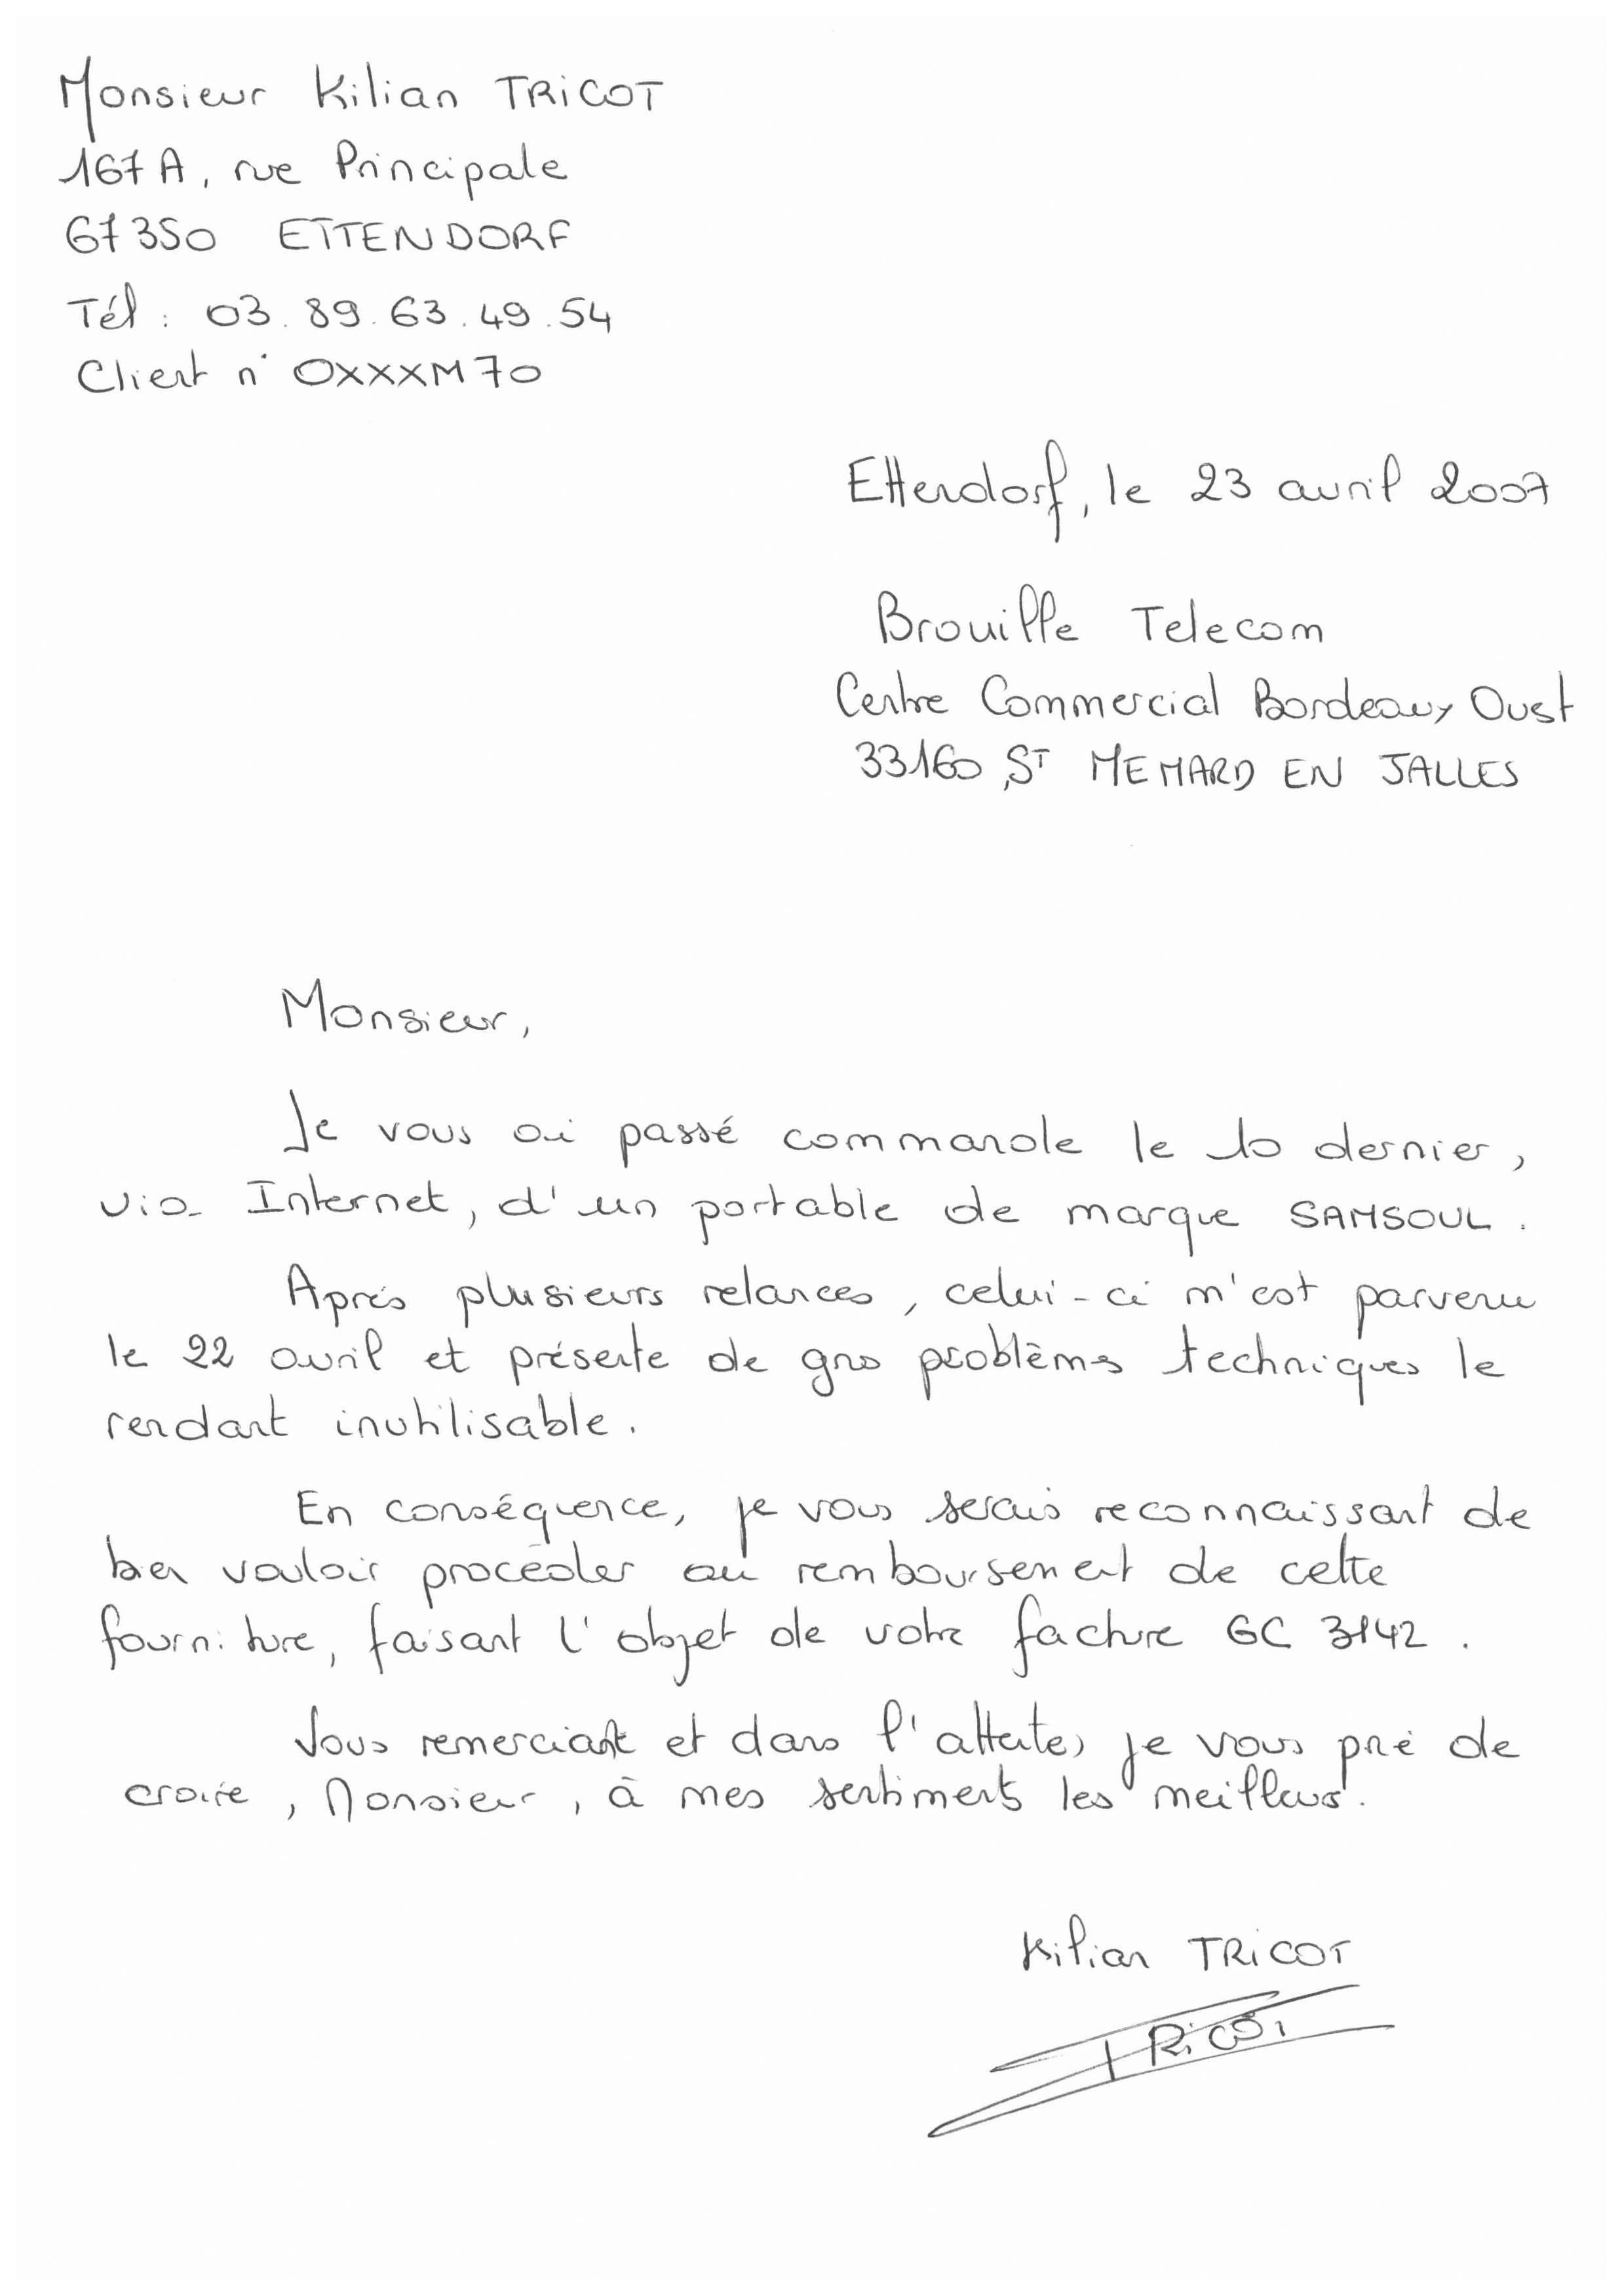 Monsieur Kilian TRICOT
167 A, rue Principale
67350 ETTENDORF
Tél : 03.89.63.49.54
Client n° OXXXM70
Ettendorf, le 23 avril 2007
Brouille Telecom
Centre Commercial Bordeaux Ouest
33160 ST MEMARD EN JALLES
Monsieur,
Je vous ai passé commande le 10 dernier,
via Internet, d'un portable de marque SAMSOUL.
Après plusieurs relances, celui-ci m'est parvenu
le 22 avril et présente de gros problèmes techniques le
rendant inutilisable.
En conséquence, je vous serais reconnaissant de
bien vouloir procéder au remboursement de cette
fourniture, faisant l'objet de votre facture GC 3142.
Vous remerciant et dans l'attente, je vous prie de
croire, Monsieur, à mes sentiments les meilleurs.
Kilian TRICOT
TRICOT